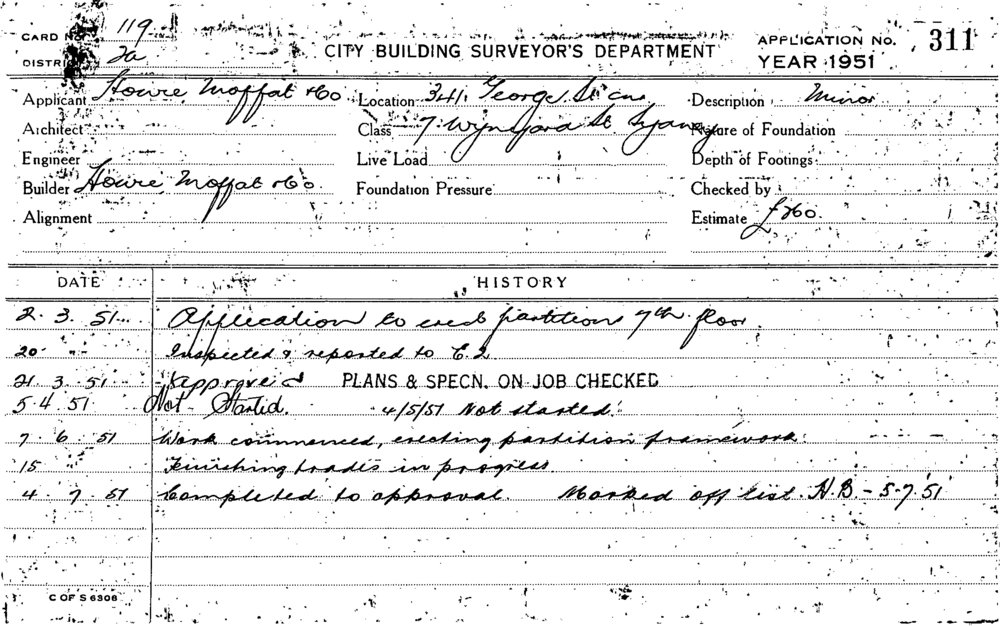 CARD No. 119
DISTRICT 2a
CITY BUILDING SURVEYOR'S DEPARTMENT
APPLICATION No. 311
YEAR 1951
Applicant Howie Moffat & Co Location 341 George St cnr Description Minor
Architect Class 7 Wynyard St Sydney Nature of Foundation
Engineer Live Load Depth of Footings
Builder Howie Moffat & Co Foundation Pressure Checked by
Alignment Estimate £260
DATE HISTORY
2. 3. 51 Application to erect partition 7th floor
20 " " Inspected & reported to
21. 3. 51 Approved PLANS & SPECN. ON JOB CHECKED
5. 4. 51 Not Started. 4/5/51 Not started.
7. 6. 51 Work commenced, erecting partition framework
15 Finishing trades in progress
4. 7. 51 Completed to approval. Marked off list. H.B. - 5.7.51
C OF S 6306